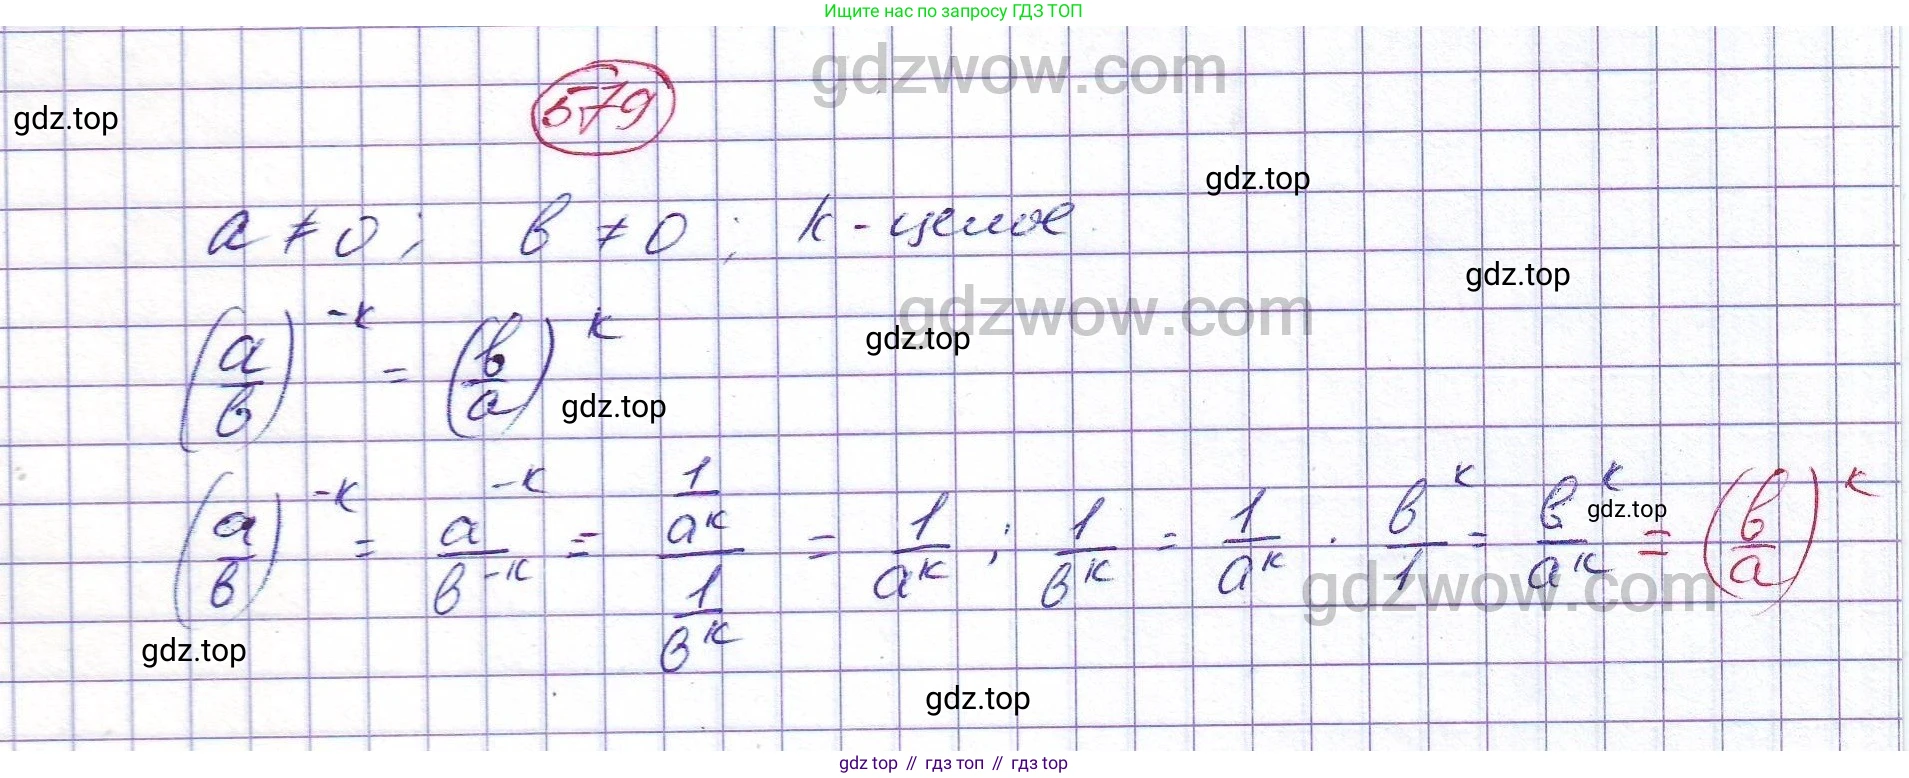 Ищите нас по запросу ГДЗ ТОП
gdzwow.com
579
gdz.top
gdz.top
a ≠ 0; в ≠ 0; к - целое
gdz.top
gdzwow.com
(a/в)^-к = (в/a)^к
gdz.top
gdz.top
(a/в)^-к = a^-к/в^-к = (1/a^к)/(1/в^к) = 1/a^к ; 1/в^к = 1/a^к · в^к/1 = в^к/a^к = (в/a)^к
gdz.top
gdzwow.com
gdz.top
gdz.top
gdz top // гдз топ // гдз top